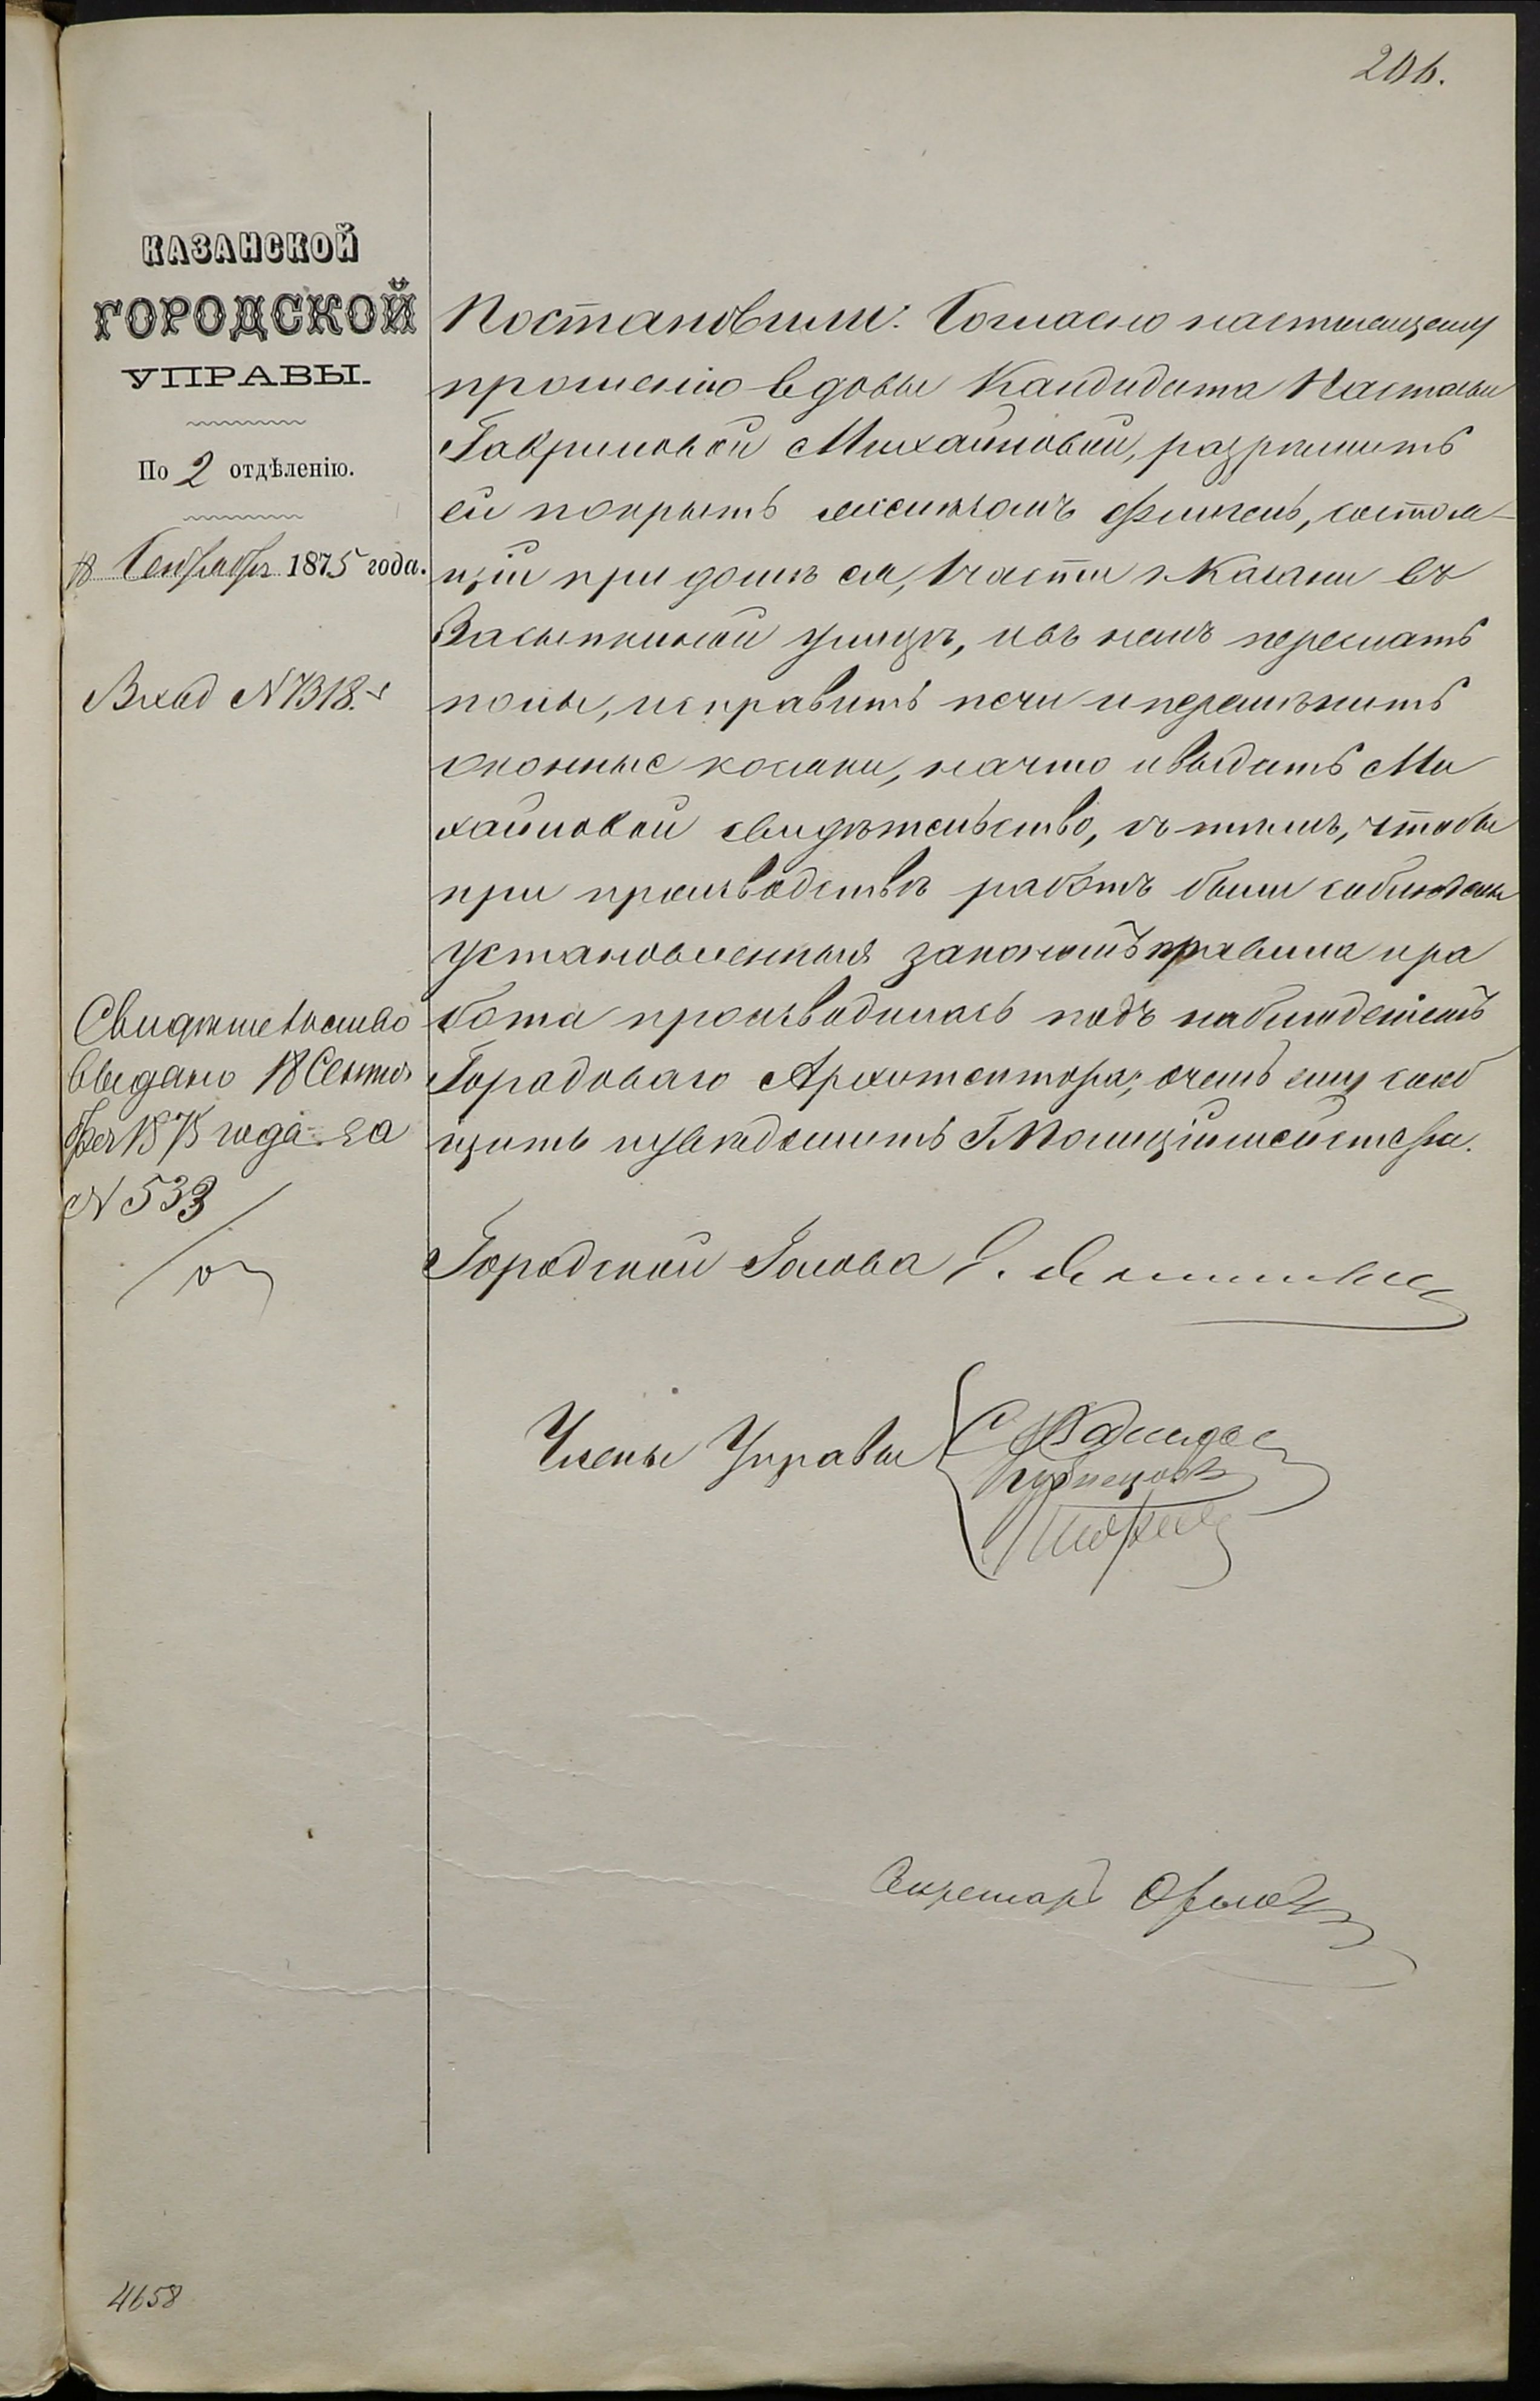 206.
КАЗАНСКОЙ
ГОРОДСКОЙ
УПРАВЫ.
По 2 отдѣленію.
18 Сентября 1875 года.
Вход N 7318.
Свидѣтельство
выдано 18 Сентя
бря 1875 года за
N 533
Постановили: Согласно настоящему
прошенію вдовы Кандидата Настасьи
Гавриловой Михайловой, разрѣшить
ей покрыть желѣзомъ флигель, состоя-
щій при домѣ ея, 1 части г. Казани въ
Засыпкиной улицѣ, и въ немъ переслать
полы, исправить печи и перемѣнить
оконные косяки, на что и выдать Ми
хайловой свидѣтельство, съ тѣмъ, чтобы
при производствѣ работъ были соблюдены
установленныя закономъ правила и ра
бота производилась подъ наблюденіемъ
Городоваго Архитектора; о чемъ ему сооб
щить и увѣдомить Г. Полиціймейстера.
Городской Голова
Члены Управы
Кузнецовъ
Секретарь
4658